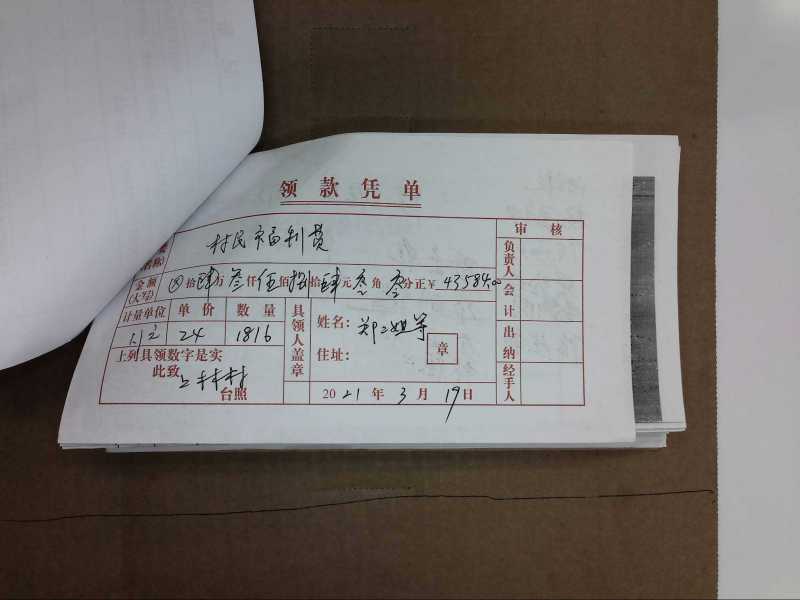 领款凭单
审核
村民福利费
金额
(大写)
⊗拾肆万叁仟伍佰捌拾肆元叁角叁分正¥43584.00
计量单位 单价 数量
24 1816
上列具领数字是实
此致
上林村
台照
具领人盖章
姓名:郑二姐等
住址:
章
2021年3月19日
负责人
会计
出纳
经手人